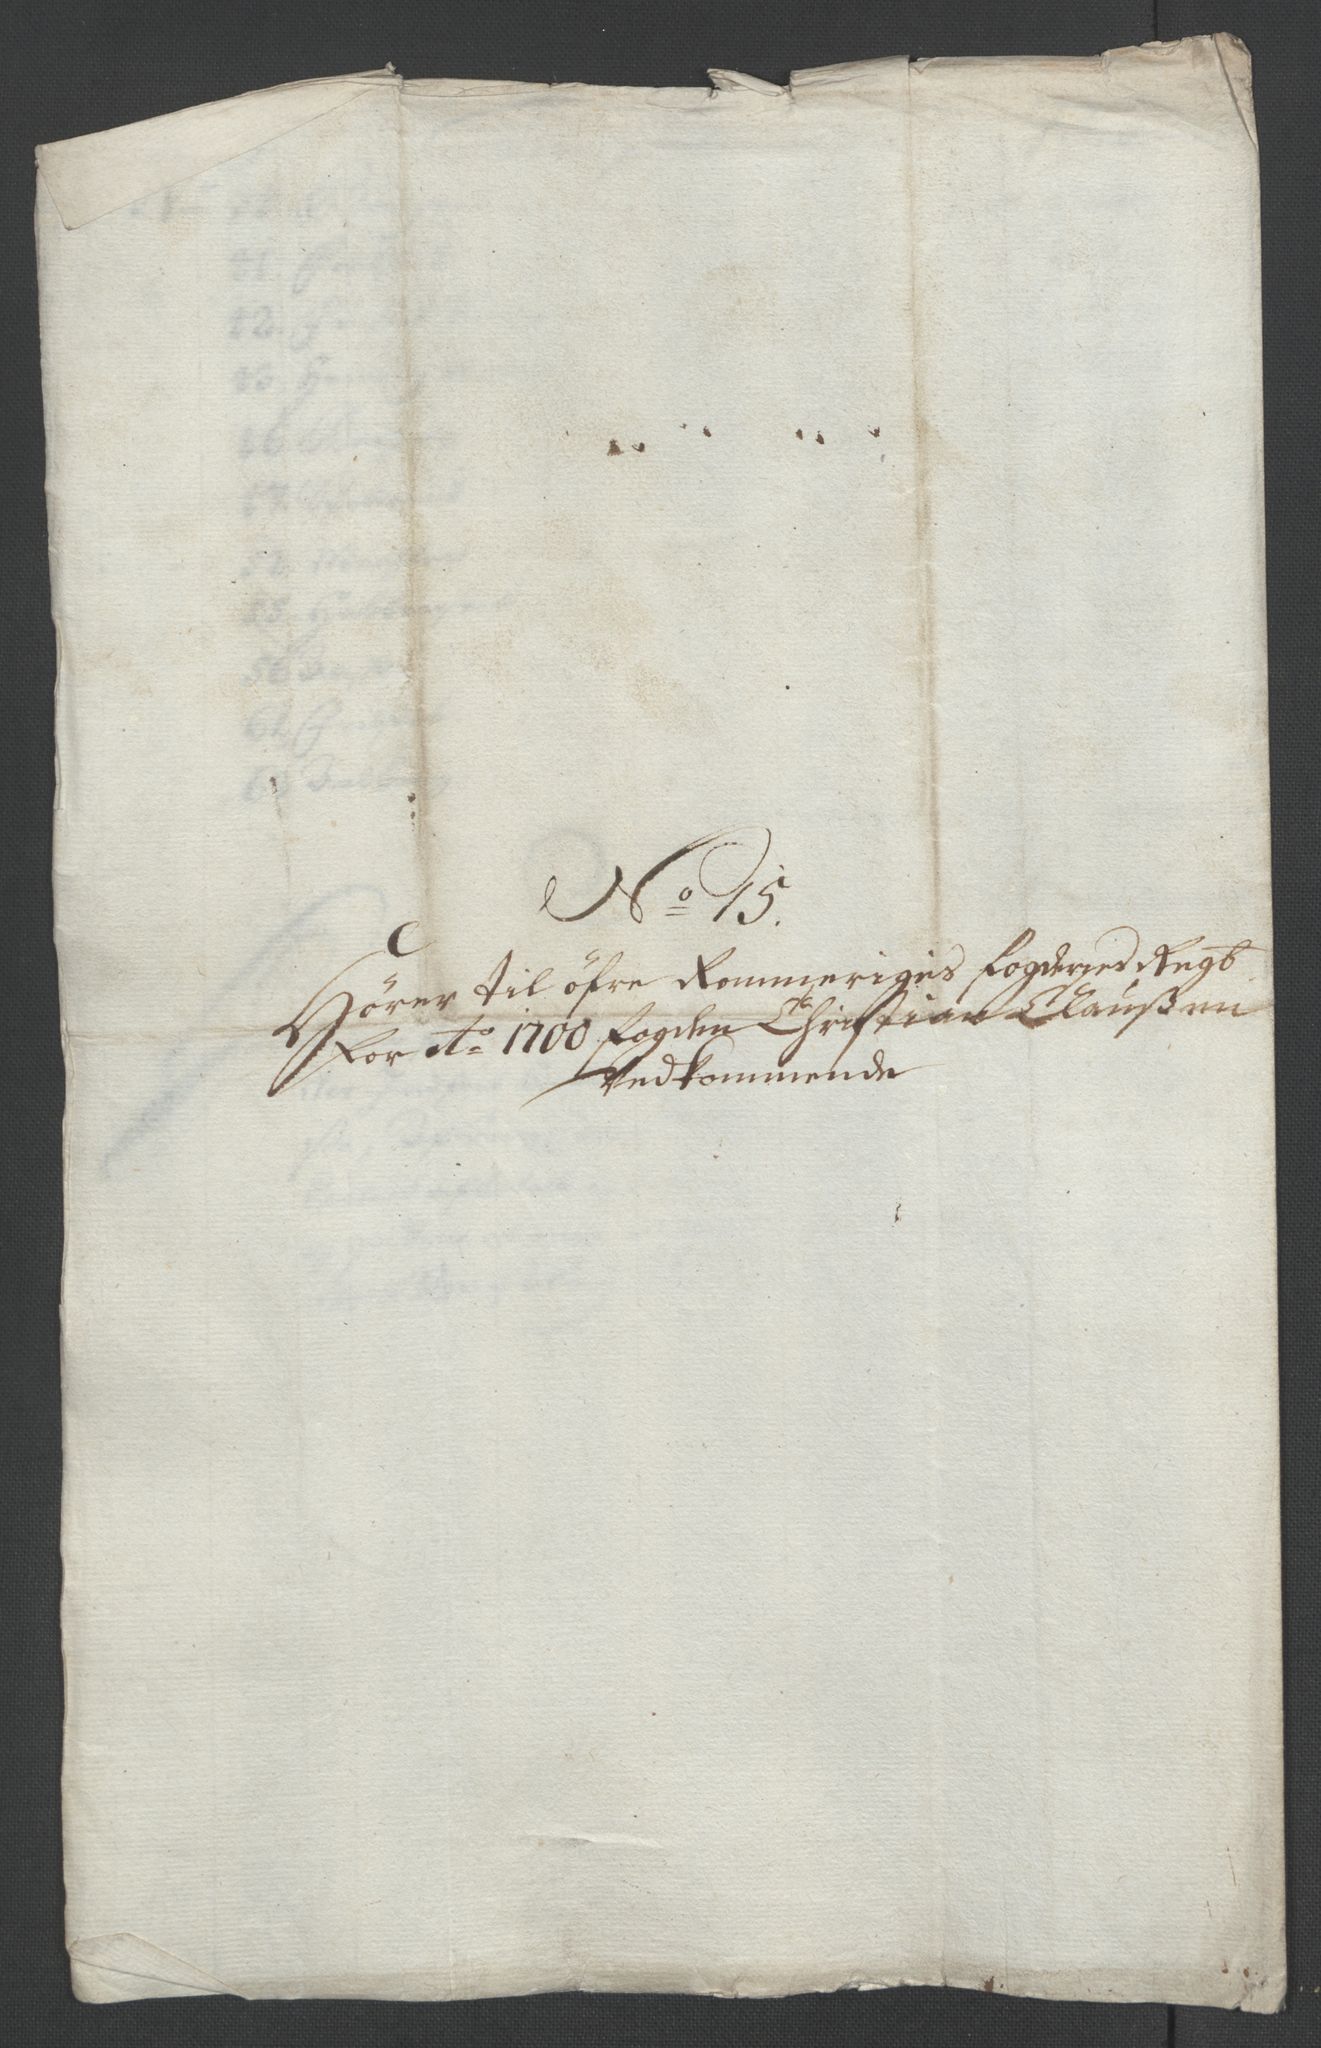 No 15.
Hörer til öfre Rommeriges fogderied Regb
for Ao 1700 fogden Christian Claußen
Vedkommende